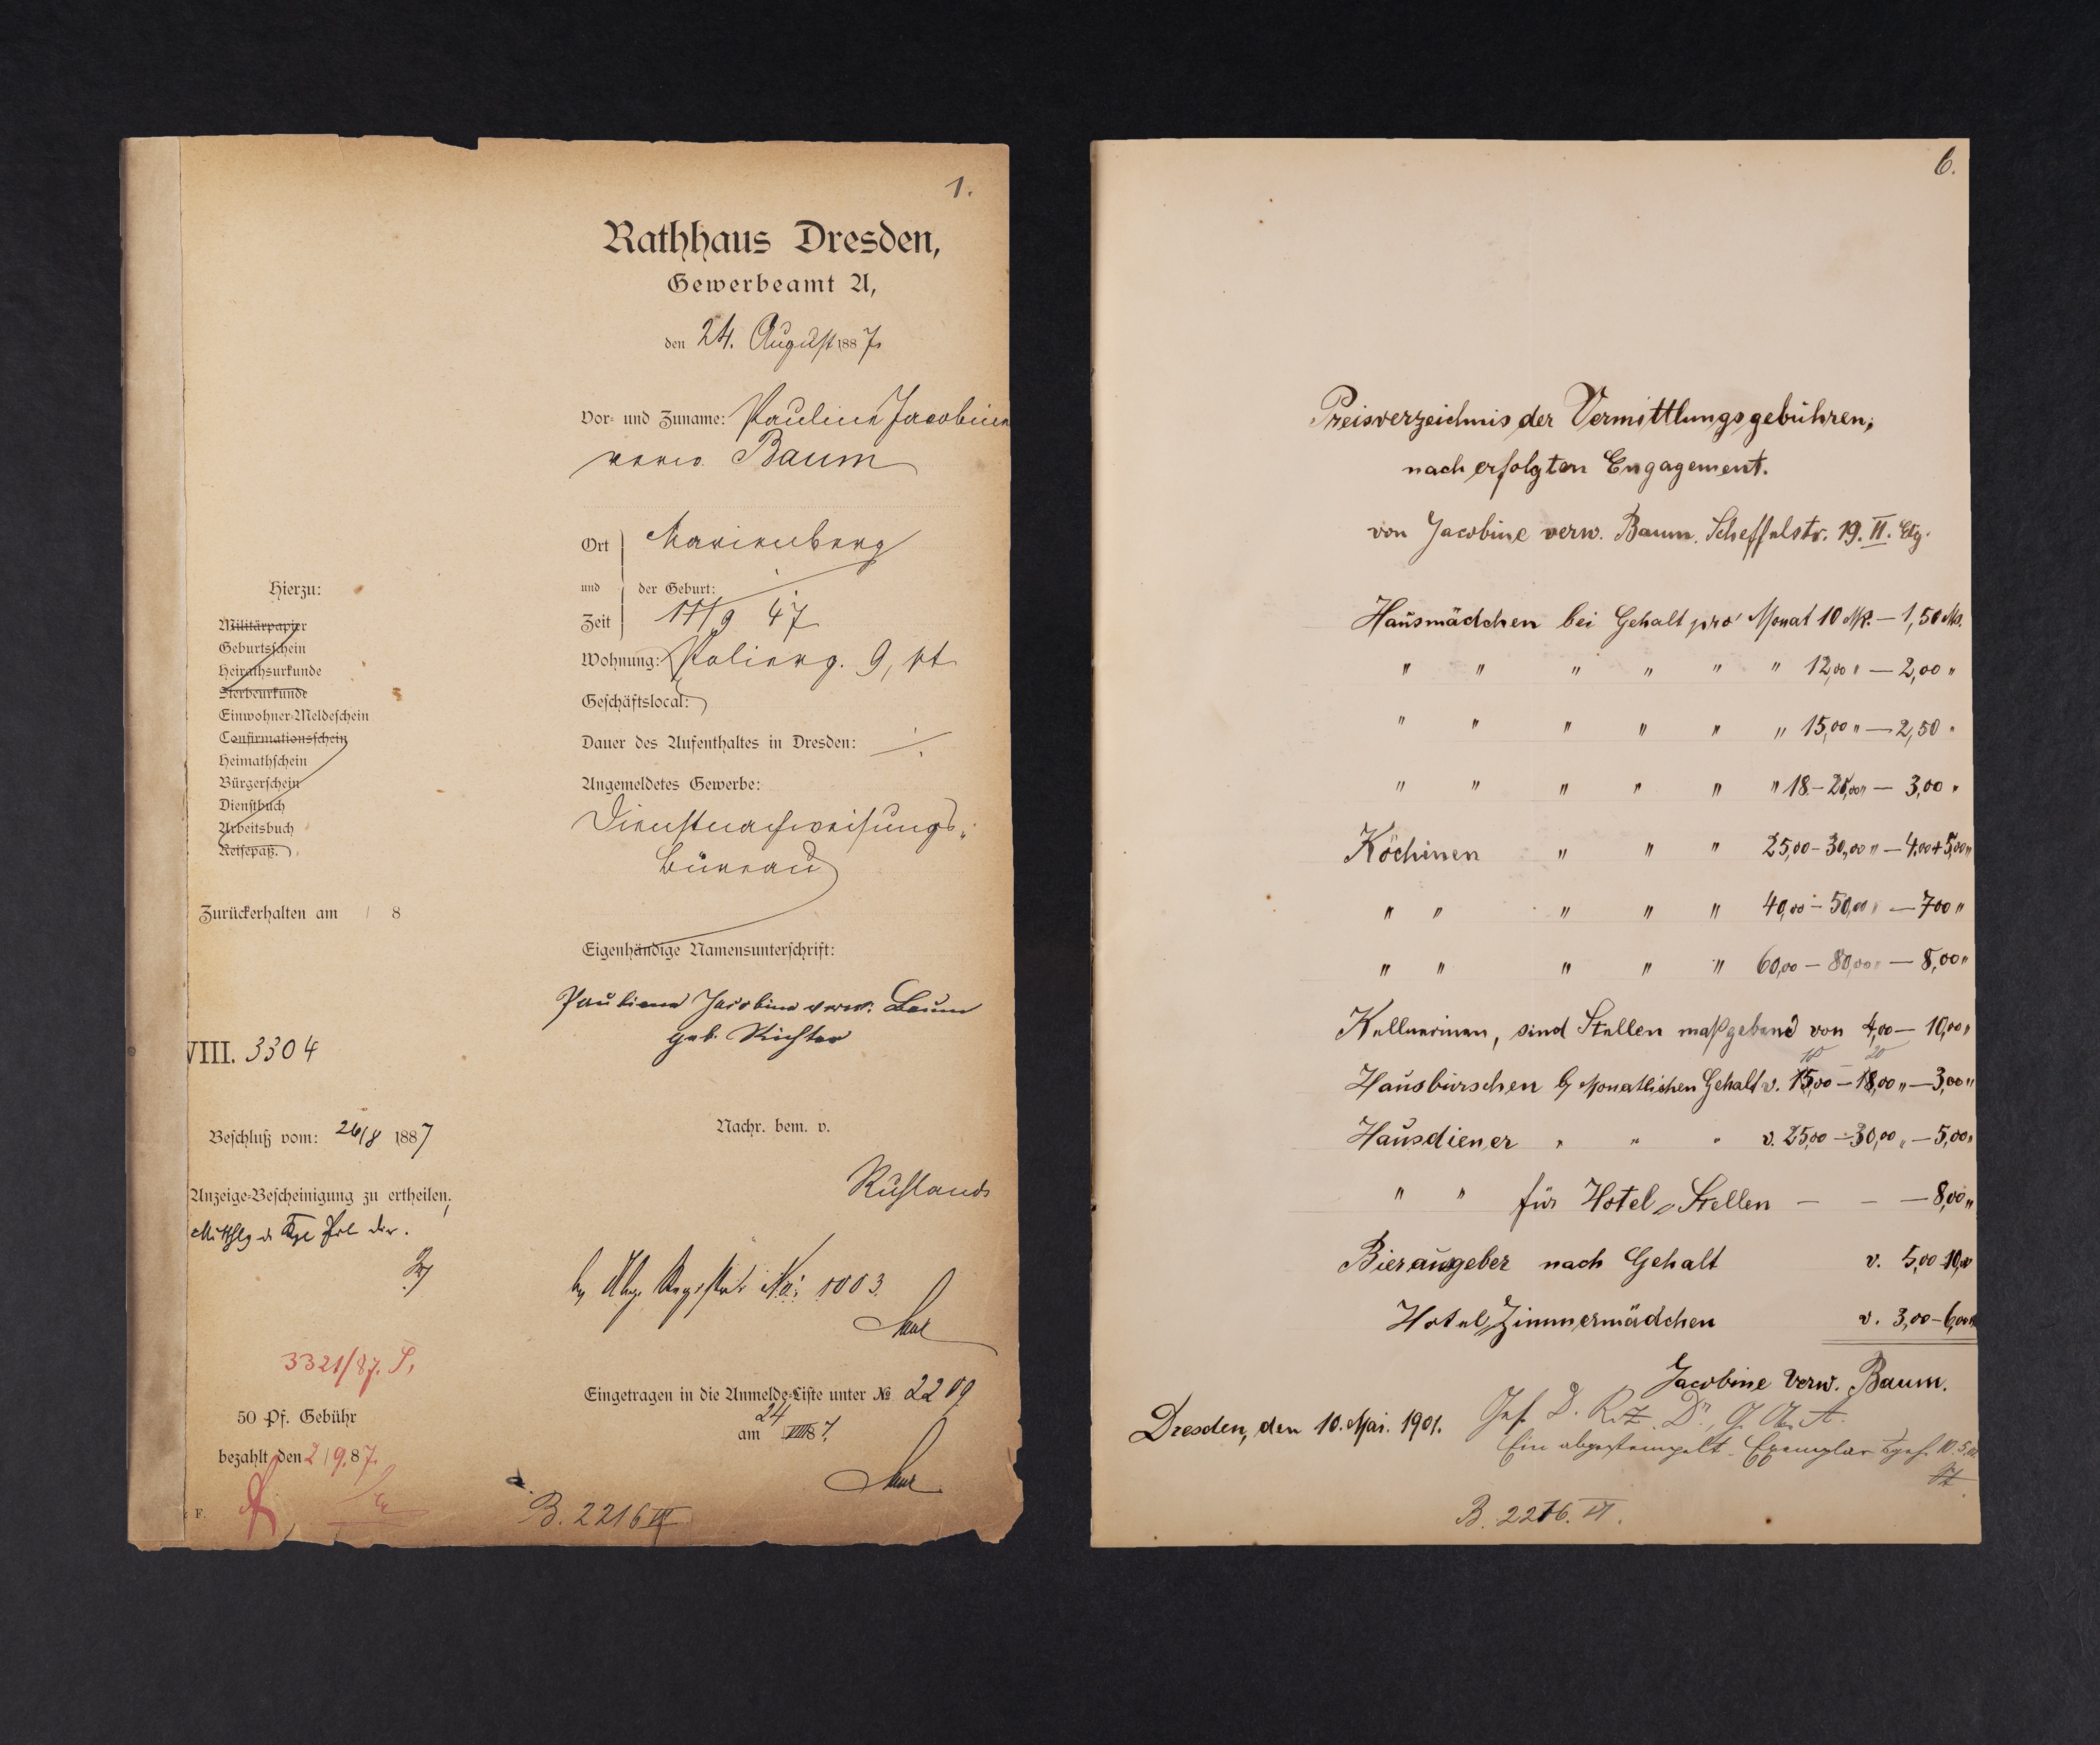 1.
Rathhaus Dresden,
Gewerbeamt A,
den 24. August 1887.
Vor- und Zuname: Pauline Jacobine
verw. Baum
Ort
Marienberg
und
der Geburt:
Zeit
17/9 47
Wohnung: Palierg. 9, pt
Geschäftslocal:
Dauer des Aufenthaltes in Dresden: ./.
Angemeldetes Gewerbe:
Dienstnachweisungs-
büreau
Eigenhändige Namensunterschrift:
Pauline Jacobine verw. Baum
geb. Richter
Nachr. bem. v.
Ruhland
No: 1003.
Eingetragen in die Anmelde-Liste unter № 2209
am 24/VIII 87.
B. 2216 VI
Hierzu:
Militärpapier
Geburtsschein
Heirathsurkunde
Sterbeurkunde
Einwohner-Meldeschein
Confirmationsschein
Heimathschein
Bürgerschein
Dienstbuch
Arbeitsbuch
Reisepaß.
Zurückerhalten am / 8
VIII. 3304
Beschluß vom: 26/8 1887
Anzeige-Bescheinigung zu ertheilen,
3321/87. S,
50 Pf. Gebühr
bezahlt den 2/9.87.
F.
6.
Preisverzeichnis der Vermittlungsgebühren,
nach erfolgten Engagement.
von Jacobine verw. Baum. Scheffelstr. 19. II. Etg.
Hausmädchen bei Gehalt pro Monat 10 Mk. — 1,50 M.
" " " " " " 12,00 " — 2,00 "
" " " " " " 15,00 " — 2,50 "
" " " " " " 18.- 20,00 " — 3,00 "
Köchinen " " " 25,00 - 30,00 " — 4,00 + 5,00 "
" " " " " 40,00 - 50,00 " — 7,00 "
" " " " " 60,00 — 80,00 " — 8,00 "
Kellnerinen, sind Stellen maßgebend von 4,00 — 10,00 "
10 20
Hausburschen b. Monatlichen Gehalt v. 15,00 — 18,00 " — 3,00 "
Hausdiener " " " v. 25,00 — 30,00 " — 5,00 "
" " für Hotel-Stellen — — — 8,00 "
Bierausgeber nach Gehalt v. 5,00 - 10,00
Hotel-Zimmermädchen v. 3,00 - 6,00
Jacobine Verw. Baum.
Dresden, den 10. Mai. 1901.
Ges. D. R. z. D., G. A. A.
Ein abgestempelt. Exemplar 10.5.01.
B. 2216. VI.